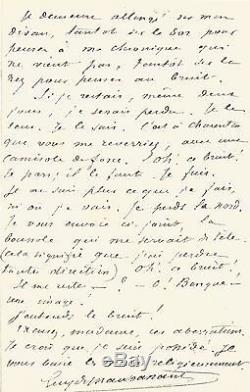 Je demeure allongé sur mon
divan, tantôt sur le dos pour
penser à ma chronique qui
ne vient pas, tantôt sur le
nez pour penser au bruit.
Si je restais, même deux
jours, je serais perdu. Je le
sens. Je le sais. C'est à Charenton
que vous me reverriez, avec une
camisole de force. Oh! ce bruit.
Je pars, il le faut. Je fuis.
Je ne sais plus ce que je fais,
ni où je vais. Je perds le nord.
Je vous envoie ci-joint, la
boussole qui me servait de tête.
(cela signifie que j'ai perdu
toute direction) Oh! ce bruit!
Il me reste
une image!
J'entends le bruit!
Excusez, madame, ces aberrations.
Je crois que je suis possédé. Je
vous baise les religieusement
Guy de Maupassant